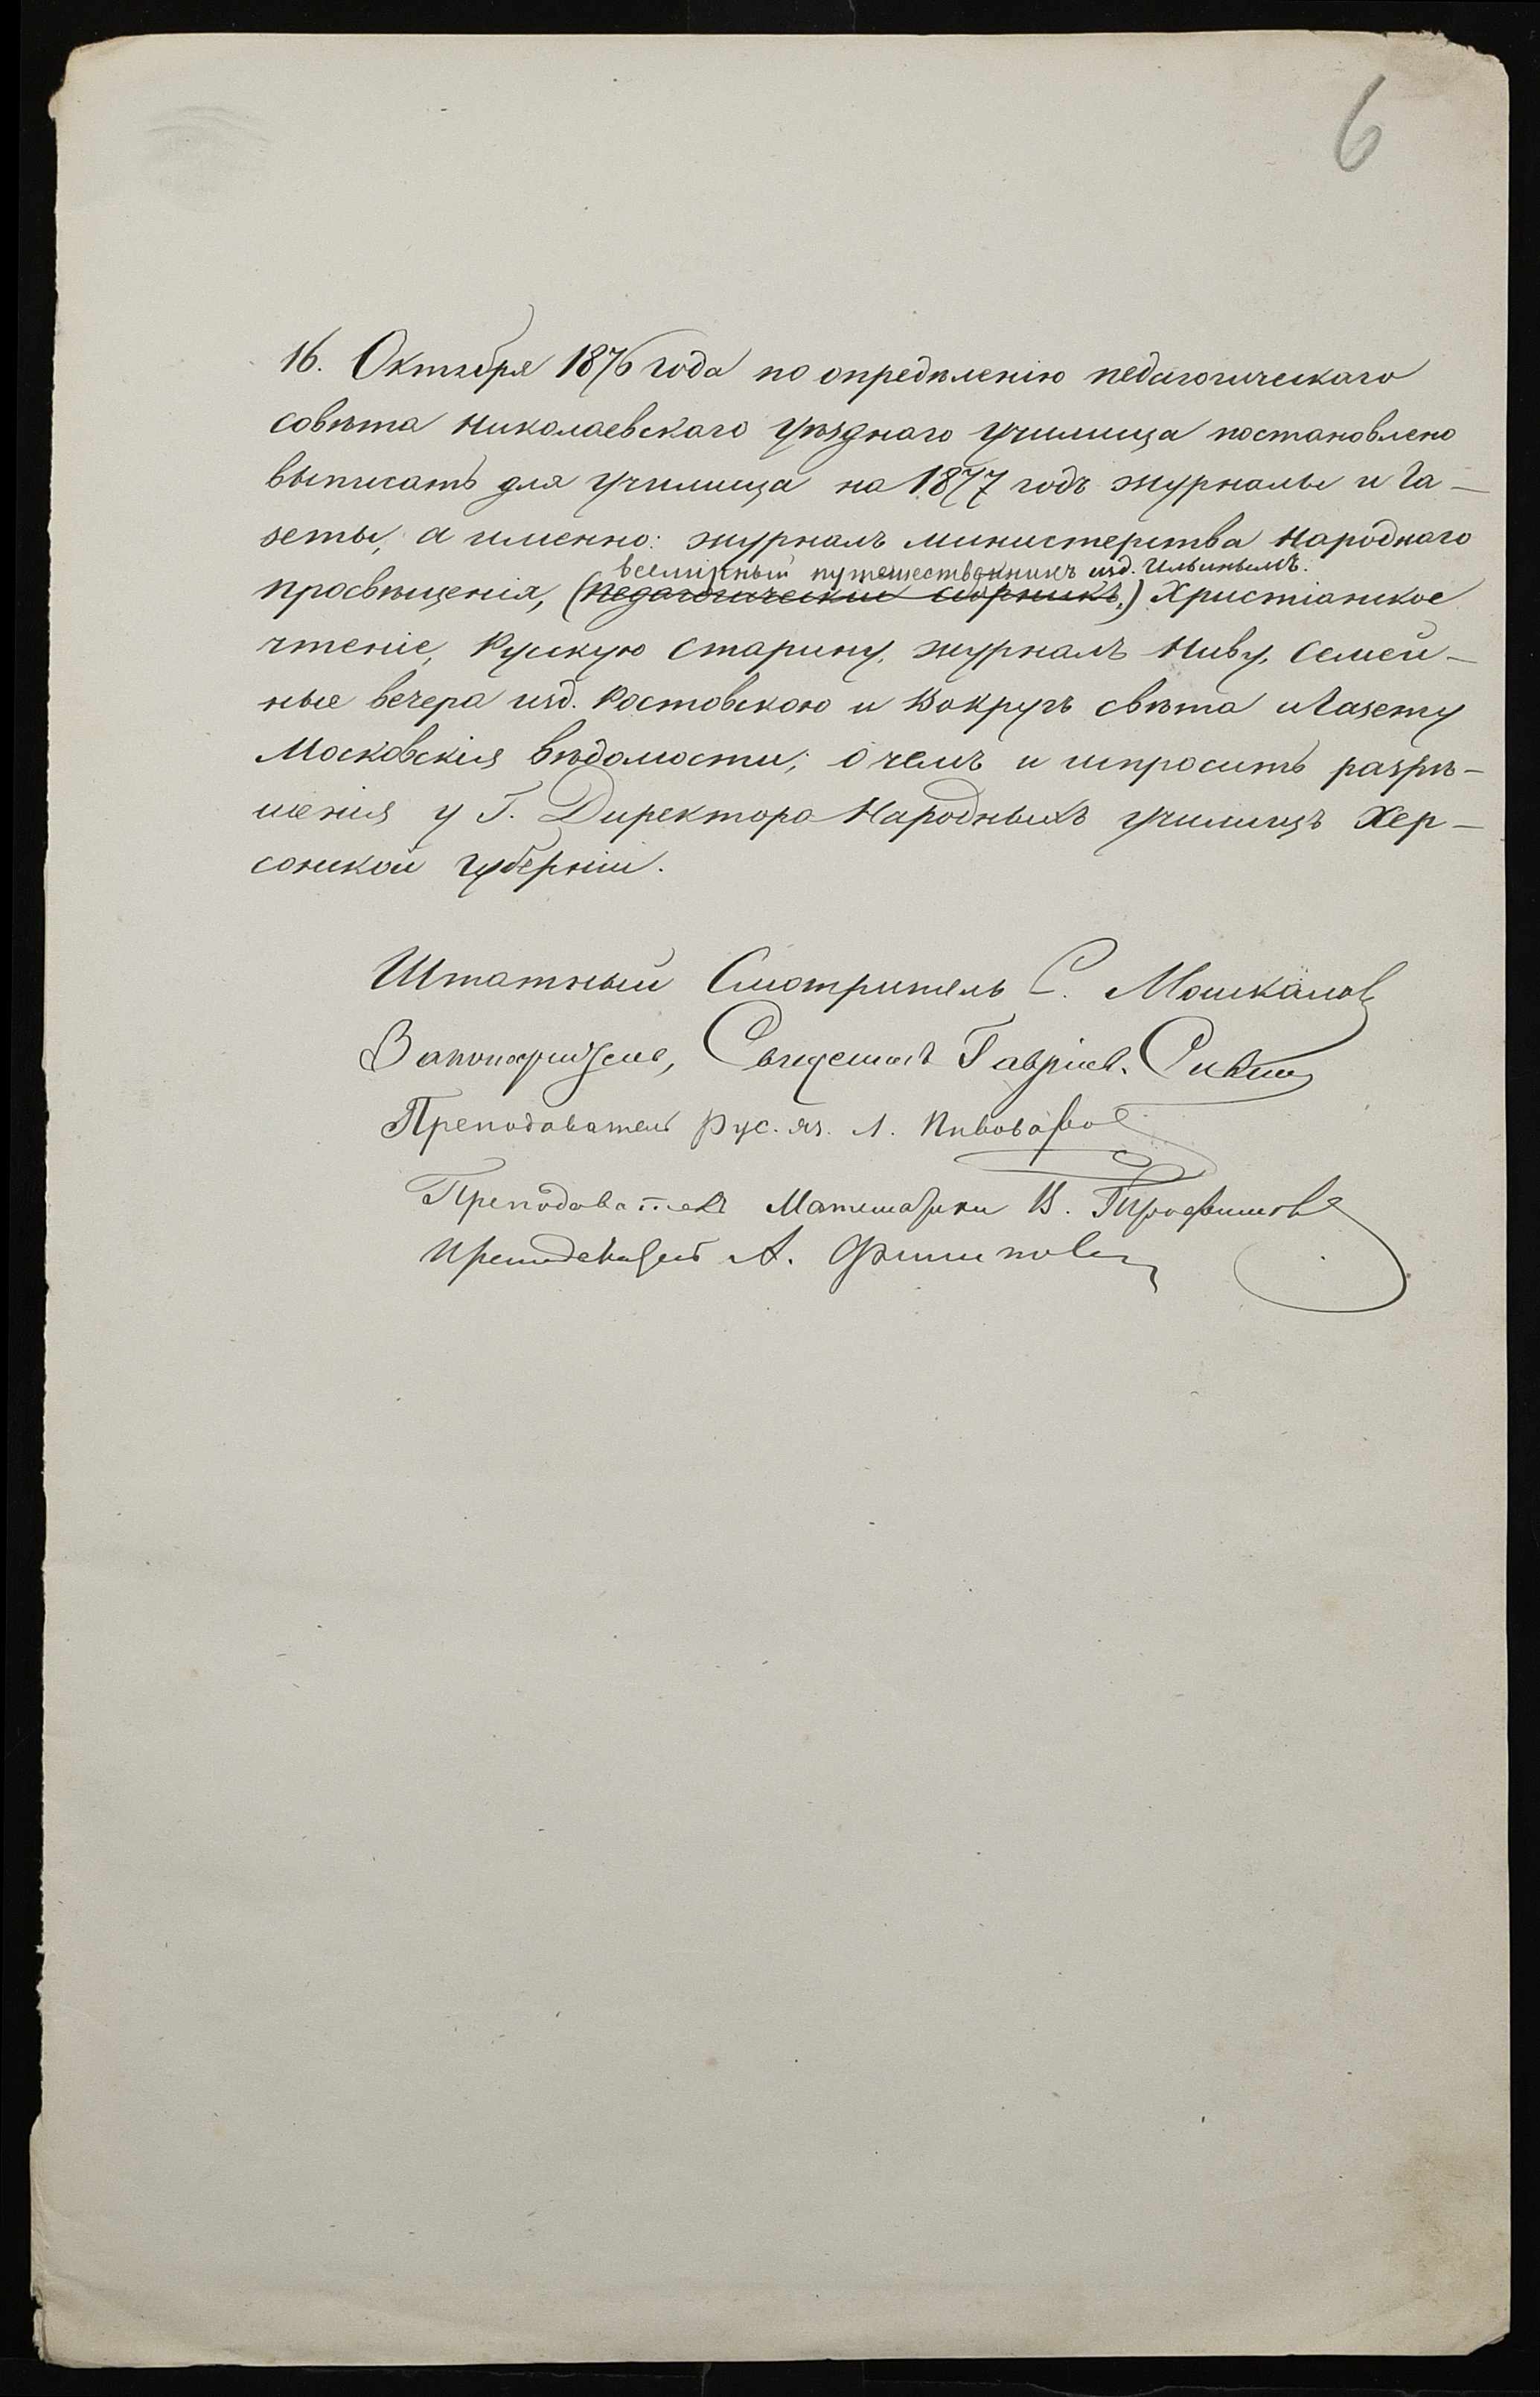 6
16. Октября 1876 года по опредѣленію педагогическаго
совѣта Николаевскаго Уѣзднаго Училища постановлено
выписать для Училища на 1877 годъ журналы и Га-
зеты, а именно: журналъ министерства Народнаго
всемірный путешественникъ изд. Ильинымъ.
просвѣщенія, (Педагогическій сборникъ,) Христіанское
чтеніе, Русскую Старину, журналъ Ниву, Семей-
ные вечера изд. Ростовскою и Вокругъ свѣта и Газету
Московскія вѣдомости; о чемъ и испросить разрѣ-
шенія у Г. Директора Народныхъ училищъ Хер-
сонской губерніи.
Штатный Смотритель С. Машкановъ
Законоучитель, Священникъ Гавріилъ
Преподаватель Рус. яз. Л. Пивоваровъ
Преподаватель Математики В. Трофимовъ
Преподаватель А. Филиповъ